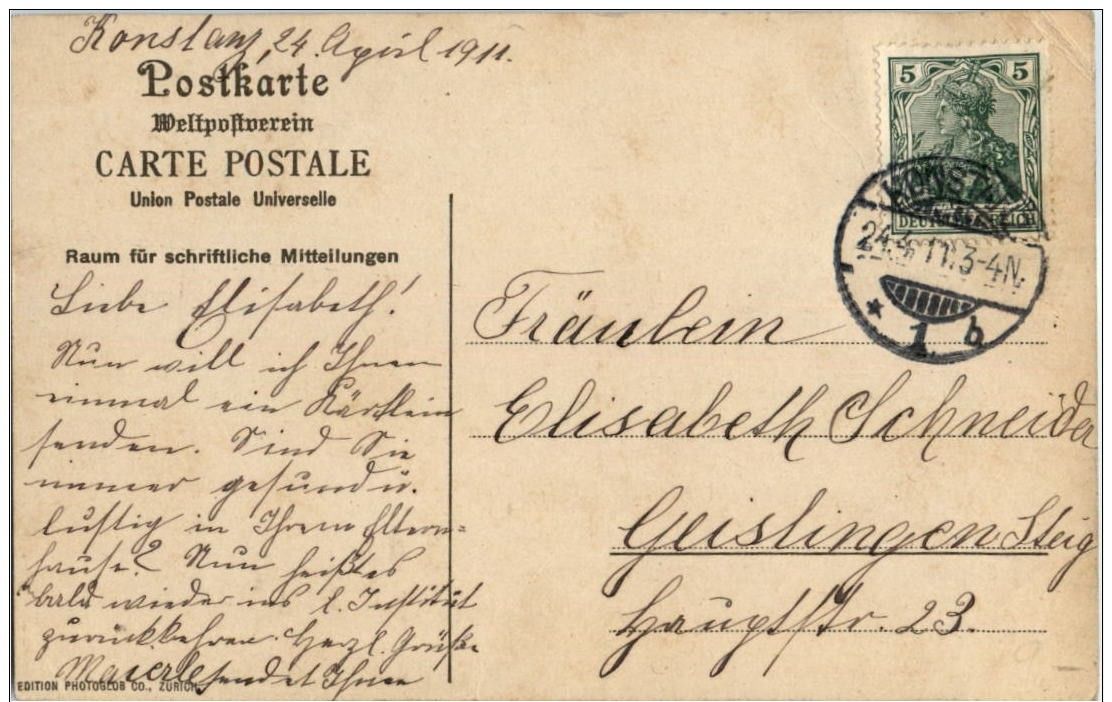 Konstanz, 24. April 1911.
Postkarte
Weltpostverein
CARTE POSTALE
Union Postale Universelle
Raum für schriftliche Mitteilungen
Liebe Elisabeth!
Nun will ich Ihnen
einmal ein Kärtlein
senden. Sind Sie
immer gesund u.
lustig in Ihrem Eltern=
hause? Nun heißt es
bald wieder ins l. Institut
zurückkehren. Herzl. Grüße
sendet Ihnen
Maierle
EDITION PHOTOGLOB CO., ZÜRICH
5 5
DEUTSCHES REICH
KONSTANZ
24.4.11.3-4N.
* 1 b
Fräulein
Elisabeth Schneider
Geislingen Steig
Hauptstr. 23.